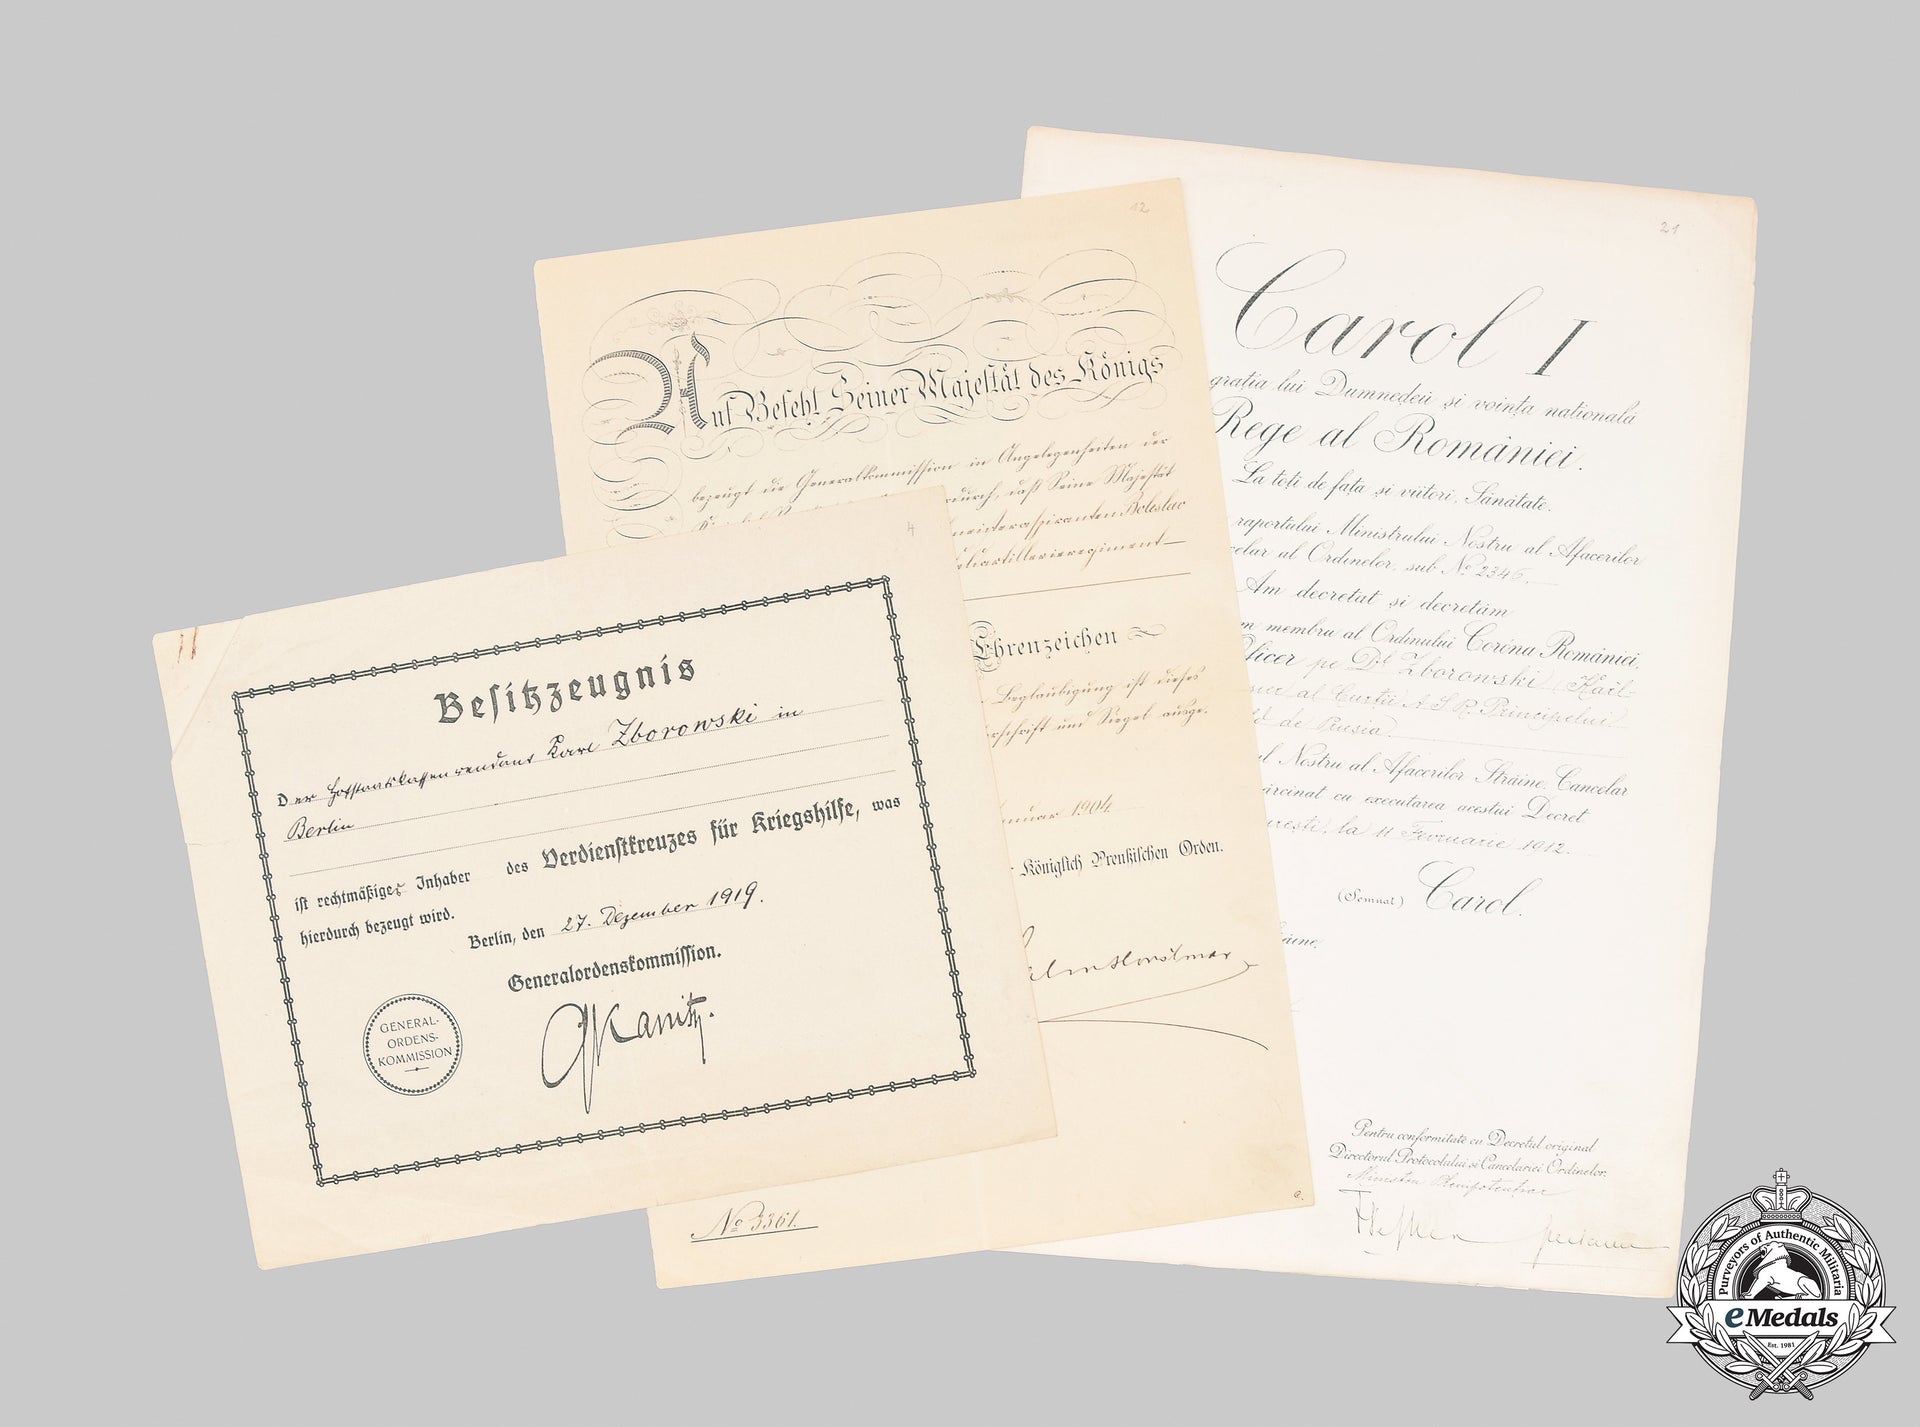 Besitzzeugnis
Der Hofstaatskassenrendant Karl Zborowski in
Berlin
ist rechtmäßiger Inhaber des Verdienstkreuzes für Kriegshilfe, was
hierdurch bezeugt wird.
Berlin, den 27. Dezember 1919.
Generalordenskommission.
GENERAL-
ORDENS-
KOMMISSION
4
12
Auf Befehl Seiner Majestät des Königs
bezeugt die Generalkommission in Angelegenheiten der
daß Seine Majestät
Boleslav
Ehrenzeichen
Beglaubigung ist dieses
und Siegel ausge-
1904
Königlich Preußischen Orden.
No 3361.
21
Carol I
gratia lui Dumnedeu și voința natională
Rege al României.
La toți de fața și viitori, Sănătate.
raportului Ministrului Nostru al Afacerilor
al Ordinelor, sub No 2346.
Am decretat și decretăm
membru al Ordinului Corona României,
pe Dl Zborowski Karl
al Curții A.S.R. Principelui
de Prusia.
Nostru al Afacerilor Străine, Cancelar
cu executarea acestui Decret
la 11 Februarie 1912.
(Semnat) Carol.
Pentru conformitate cu Decretul original
Directorul Protocolului și Cancelariei Ordinelor.
Ministru Plenipotențiar
Purveyors of Authentic Militaria
eMedals
Est. 1981